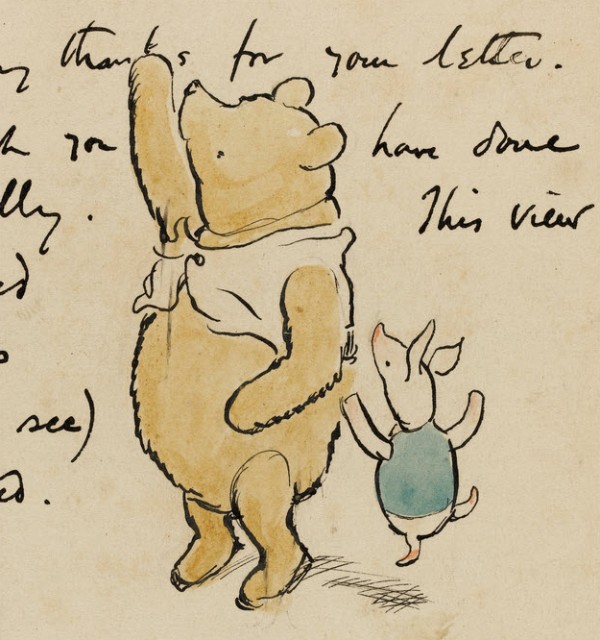 thanks for your letter.
you have done
lly. This view
ed
see)
ed.